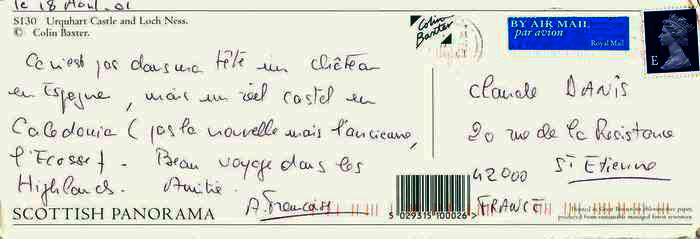 le 18 Août. 01
S130 Urquhart Castle and Loch Ness.
© Colin Baxter.
Ce n'est pas dans ma tête un château
en Espagne, mais un réel castel en
Caledonia (pas la nouvelle mais l'ancienne,
l'Ecosse). Beau voyage dans les
Highlands. Amitié.
A. Francaise
SCOTTISH PANORAMA
Colin
Baxter
BY AIR MAIL
par avion
Royal Mail
E
Claude DANIS
20 rue de la Resistance
42000 St Etienne
FRANCE
5 029315 100026